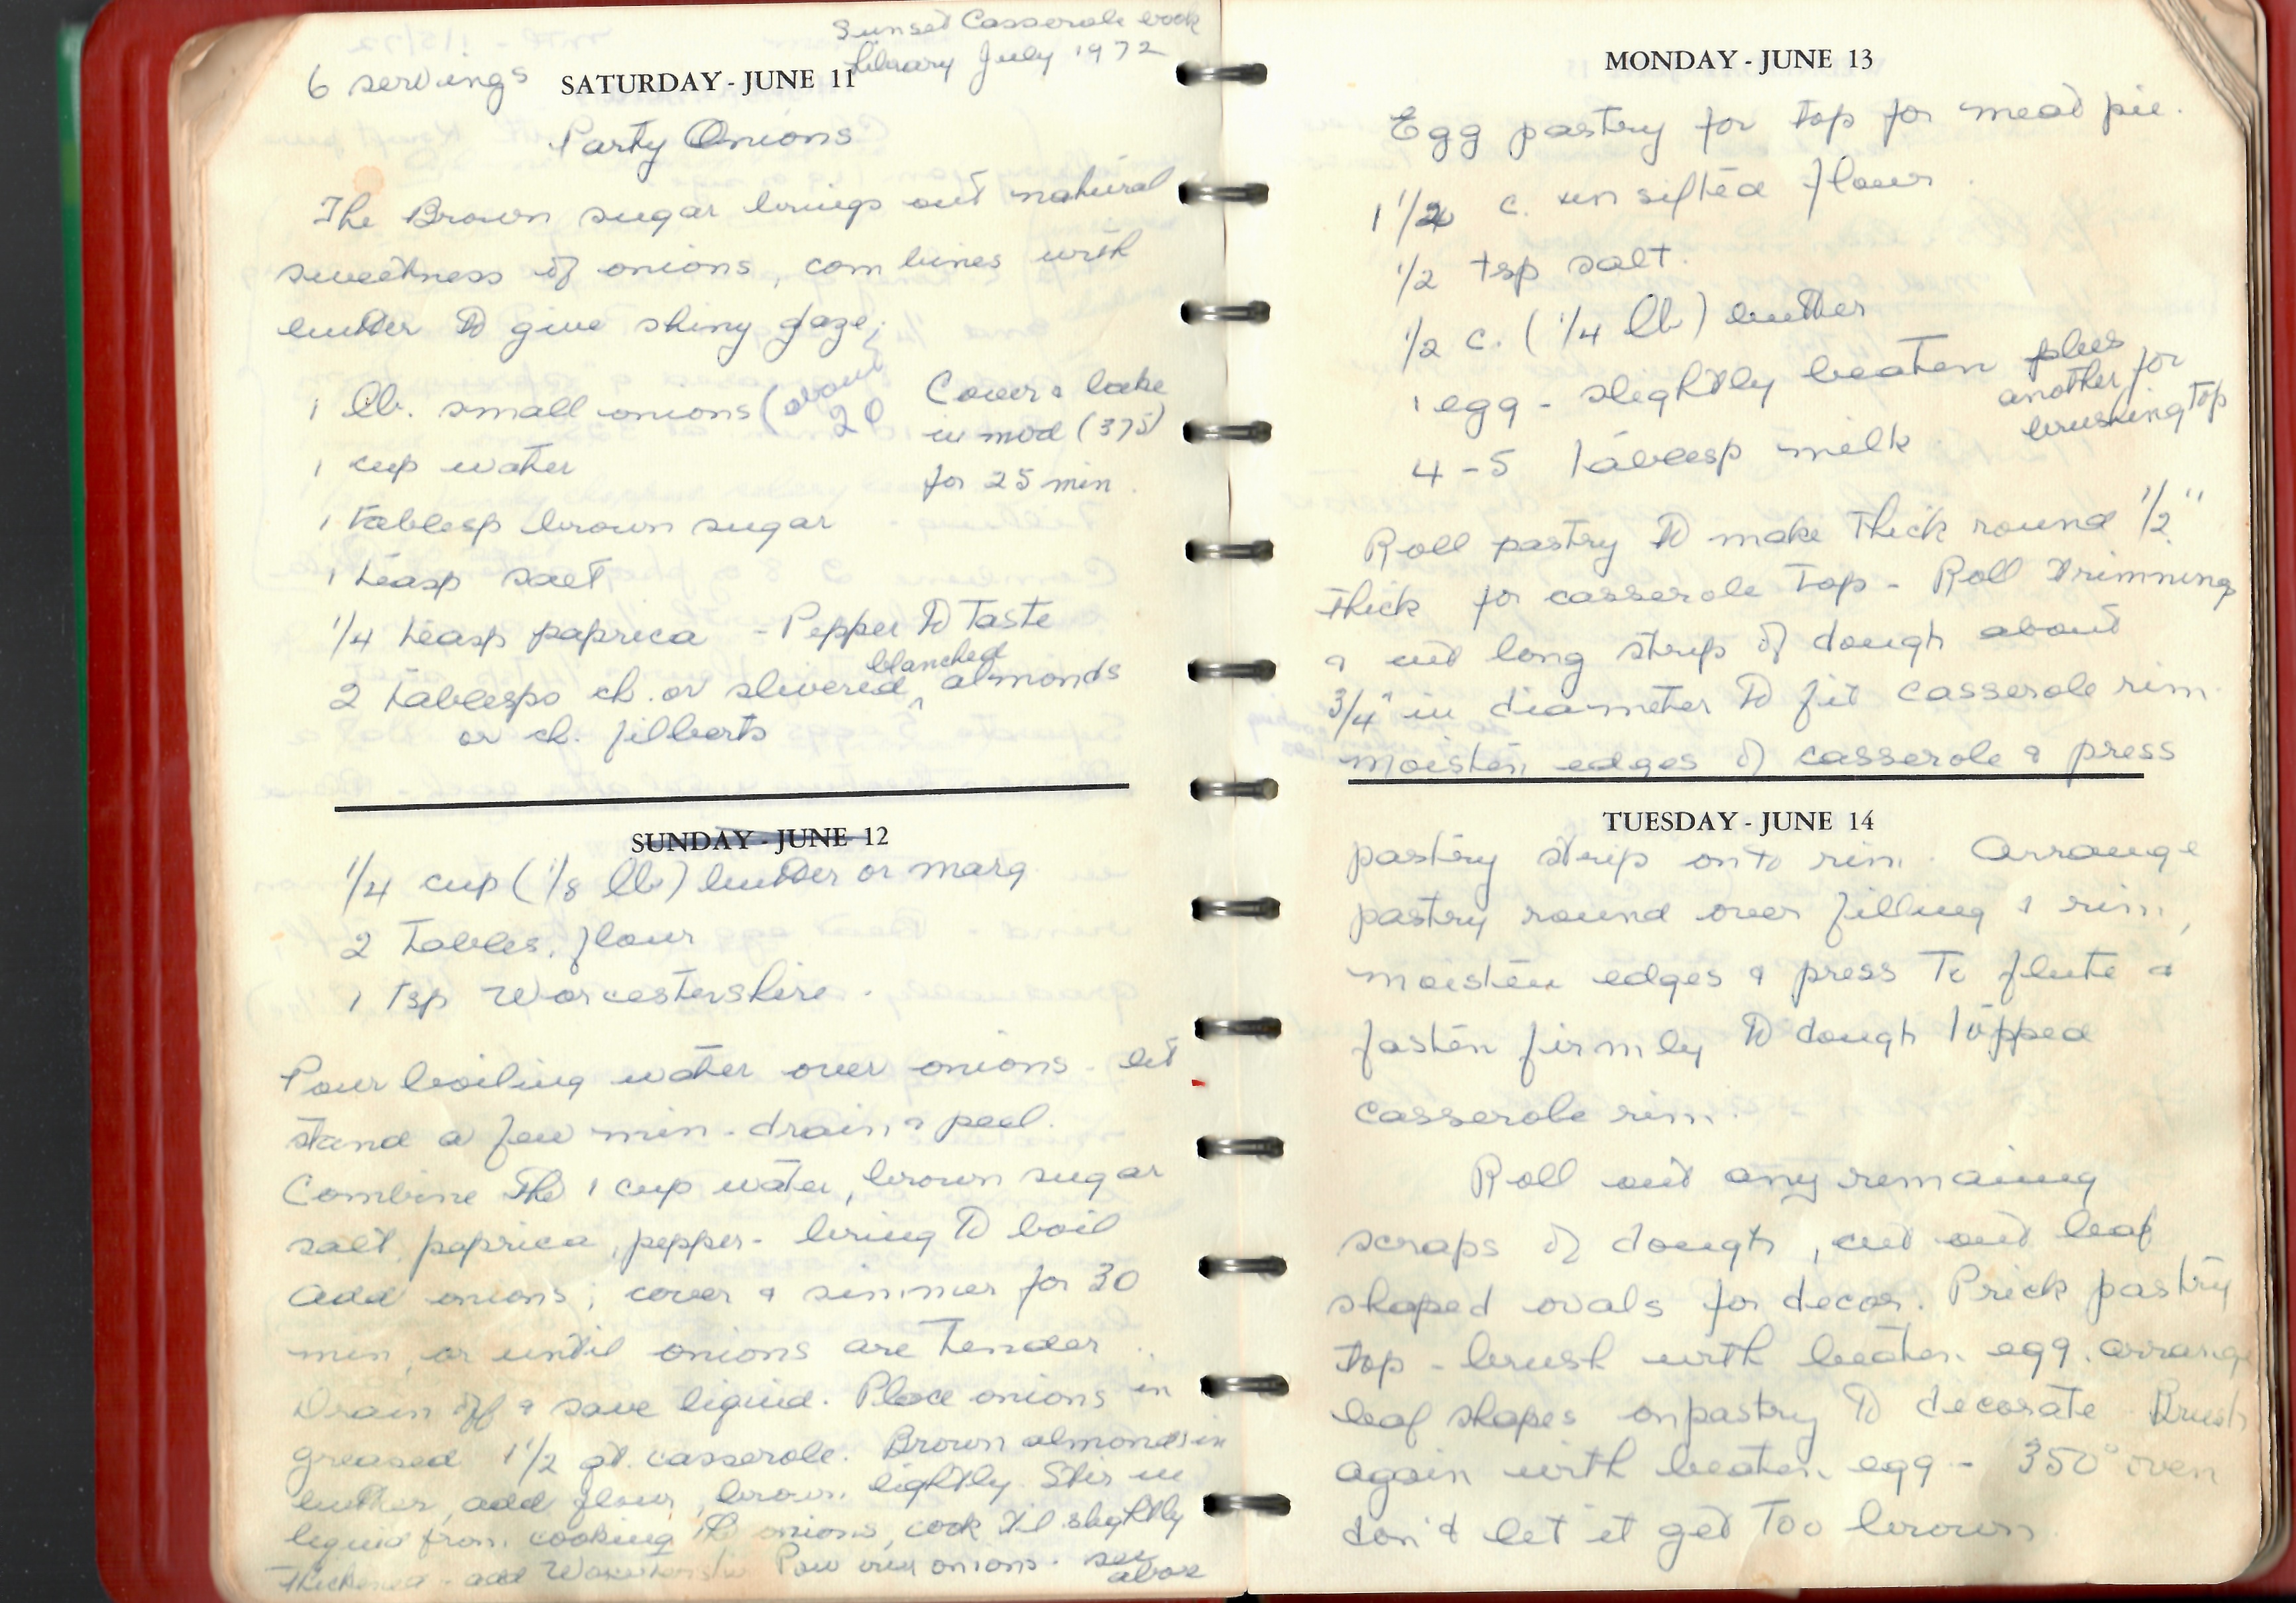 Sunset Casserole book
Library July 1972
6 servings
SATURDAY - JUNE 11
Party Onions
The Brown sugar brings out natural
sweetness of onions, combines with
butter to give shiny glaze;
1 lb. small onions (about 20
1 cup water
1 tablesp brown sugar
1 teasp salt
1/4 teasp paprica - Pepper to Taste
2 tablespo ch. or slivered blanched almonds
or ch. filberts
Cover & bake
in mod (375)
for 25 min.
SUNDAY - JUNE 12
1/4 cup (1/8 lb) butter or marg
2 Tables. flour
1 tsp Worcestershire.
Pour boiling water over onions - let
stand a few min - drain & peel.
Combine the 1 cup water, brown sugar
salt, paprica, pepper - bring to boil
Add onions; cover & simmer for 30
min, or until onions are tender.
Drain off & save liquid. Place onions in
greased 1 1/2 qt. casserole. Brown almonds in
butter, add flour, brown lightly. Stir in
liquid from cooking the onions, cook til slightly
thickened - add Worcestershire Pour over onions. see
above
MONDAY - JUNE 13
Egg pastry for top for meat pie.
1 1/2 c. unsifted flour
1/2 tsp salt.
1/2 c. (1/4 lb) butter
1 egg - slightly beaten plus
another for
brushing top
4-5 tablesp milk
Roll pastry to make thick round 1/2"
thick for casserole top - Roll trimming
& cut long strip of dough about
3/4" in diameter to fit casserole rim
moisten edges of casserole & press
TUESDAY - JUNE 14
pastry strip onto rim. Arrange
pastry round over filling & rim,
moisten edges & press to flute &
fasten firmly to dough topped
casserole rim.
Roll out any remaing
scraps of dough, cut out leaf
shaped ovals for decor. Prick pastry
top - brush with beaten egg, arrange
leaf shapes on pastry to decorate Brush
again with beaten egg - 350° oven
don't let it get too brown